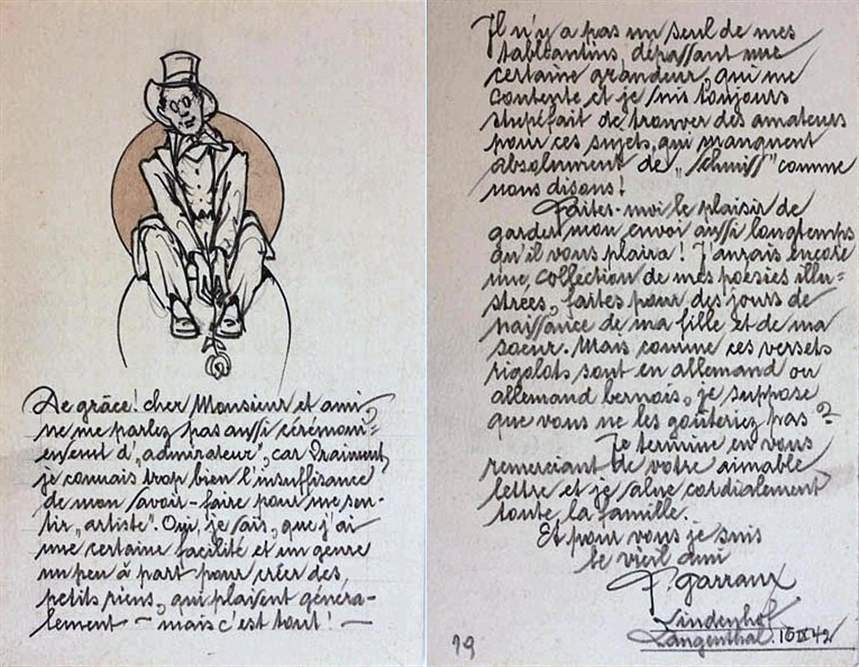 De grâce! cher Monsieur et ami,
ne me parlez pas aussi cérémoni=
eusement d'„admirateur", car vraiment,
je connais trop bien l'insuffisance
de mon savoir-faire pour me sen-
tir „artiste". Oui, je sais, que j'ai
une certaine facilité et un genre
un peu à part pour créer des
petits riens, qui plaisent généra-
lement — mais c'est tout! —
Il n'y a pas un seul de mes
tableautins, dépassant une
certaine grandeur, qui me
contente et je suis toujours
stupéfait de trouver des amateurs
pour ces sujets, qui manquent
absolument de „Schmiss" comme
nous disons!
Faites-moi le plaisir de
garder mon envoi aussi longtemps
qu'il vous plaira! J'aurais encore
une collection de mes poésies illu=
strées, faites pour des jours de
naissance de ma fille et de ma
soeur. Mais comme ces versets
rigolots sont en allemand ou
allemand bernois, je suppose
que vous ne les goûteriez pas?
Je termine en vous
remerciant de votre aimable
lettre et je salue cordialement
toute la famille.
Et pour vous je suis
le vieil ami
F. Garraux
Lindenhof
Langenthal.
19